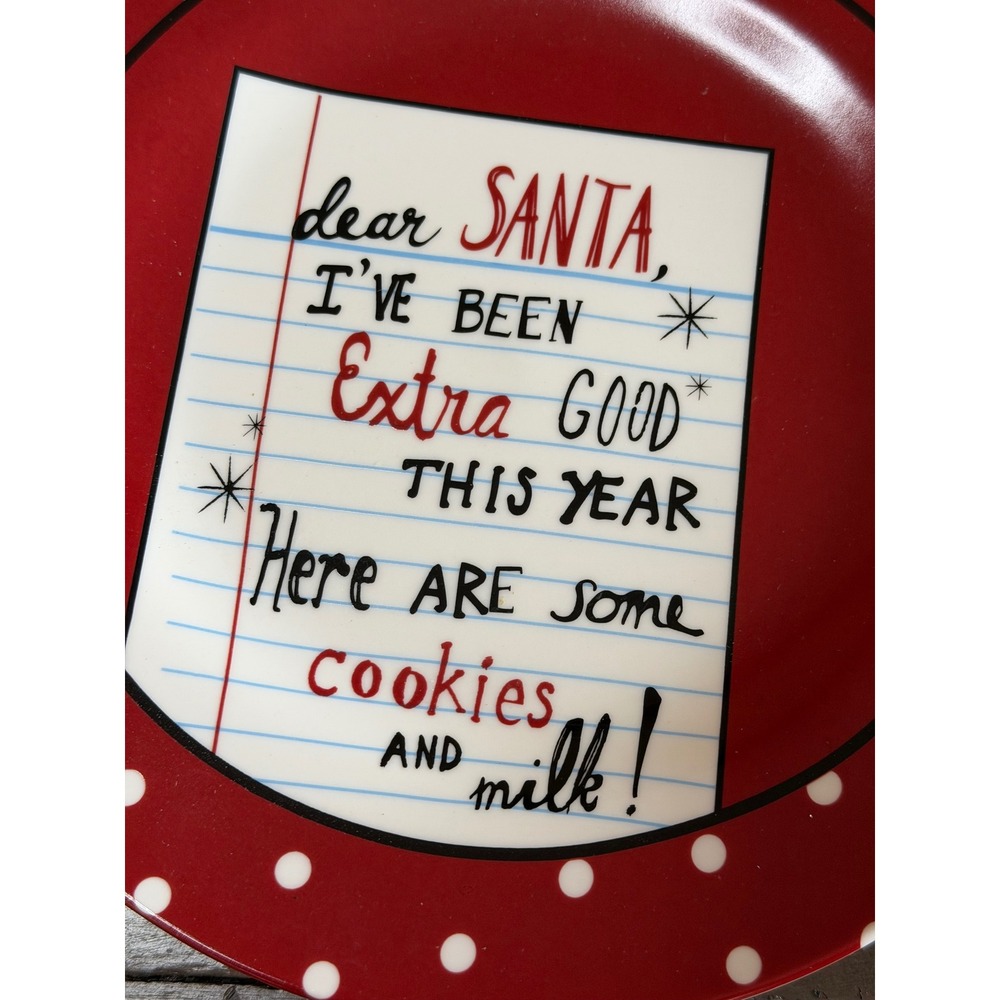 dear SANTA,
I'VE BEEN
Extra GOOD
THIS YEAR
Here ARE some
cookies
AND milk!